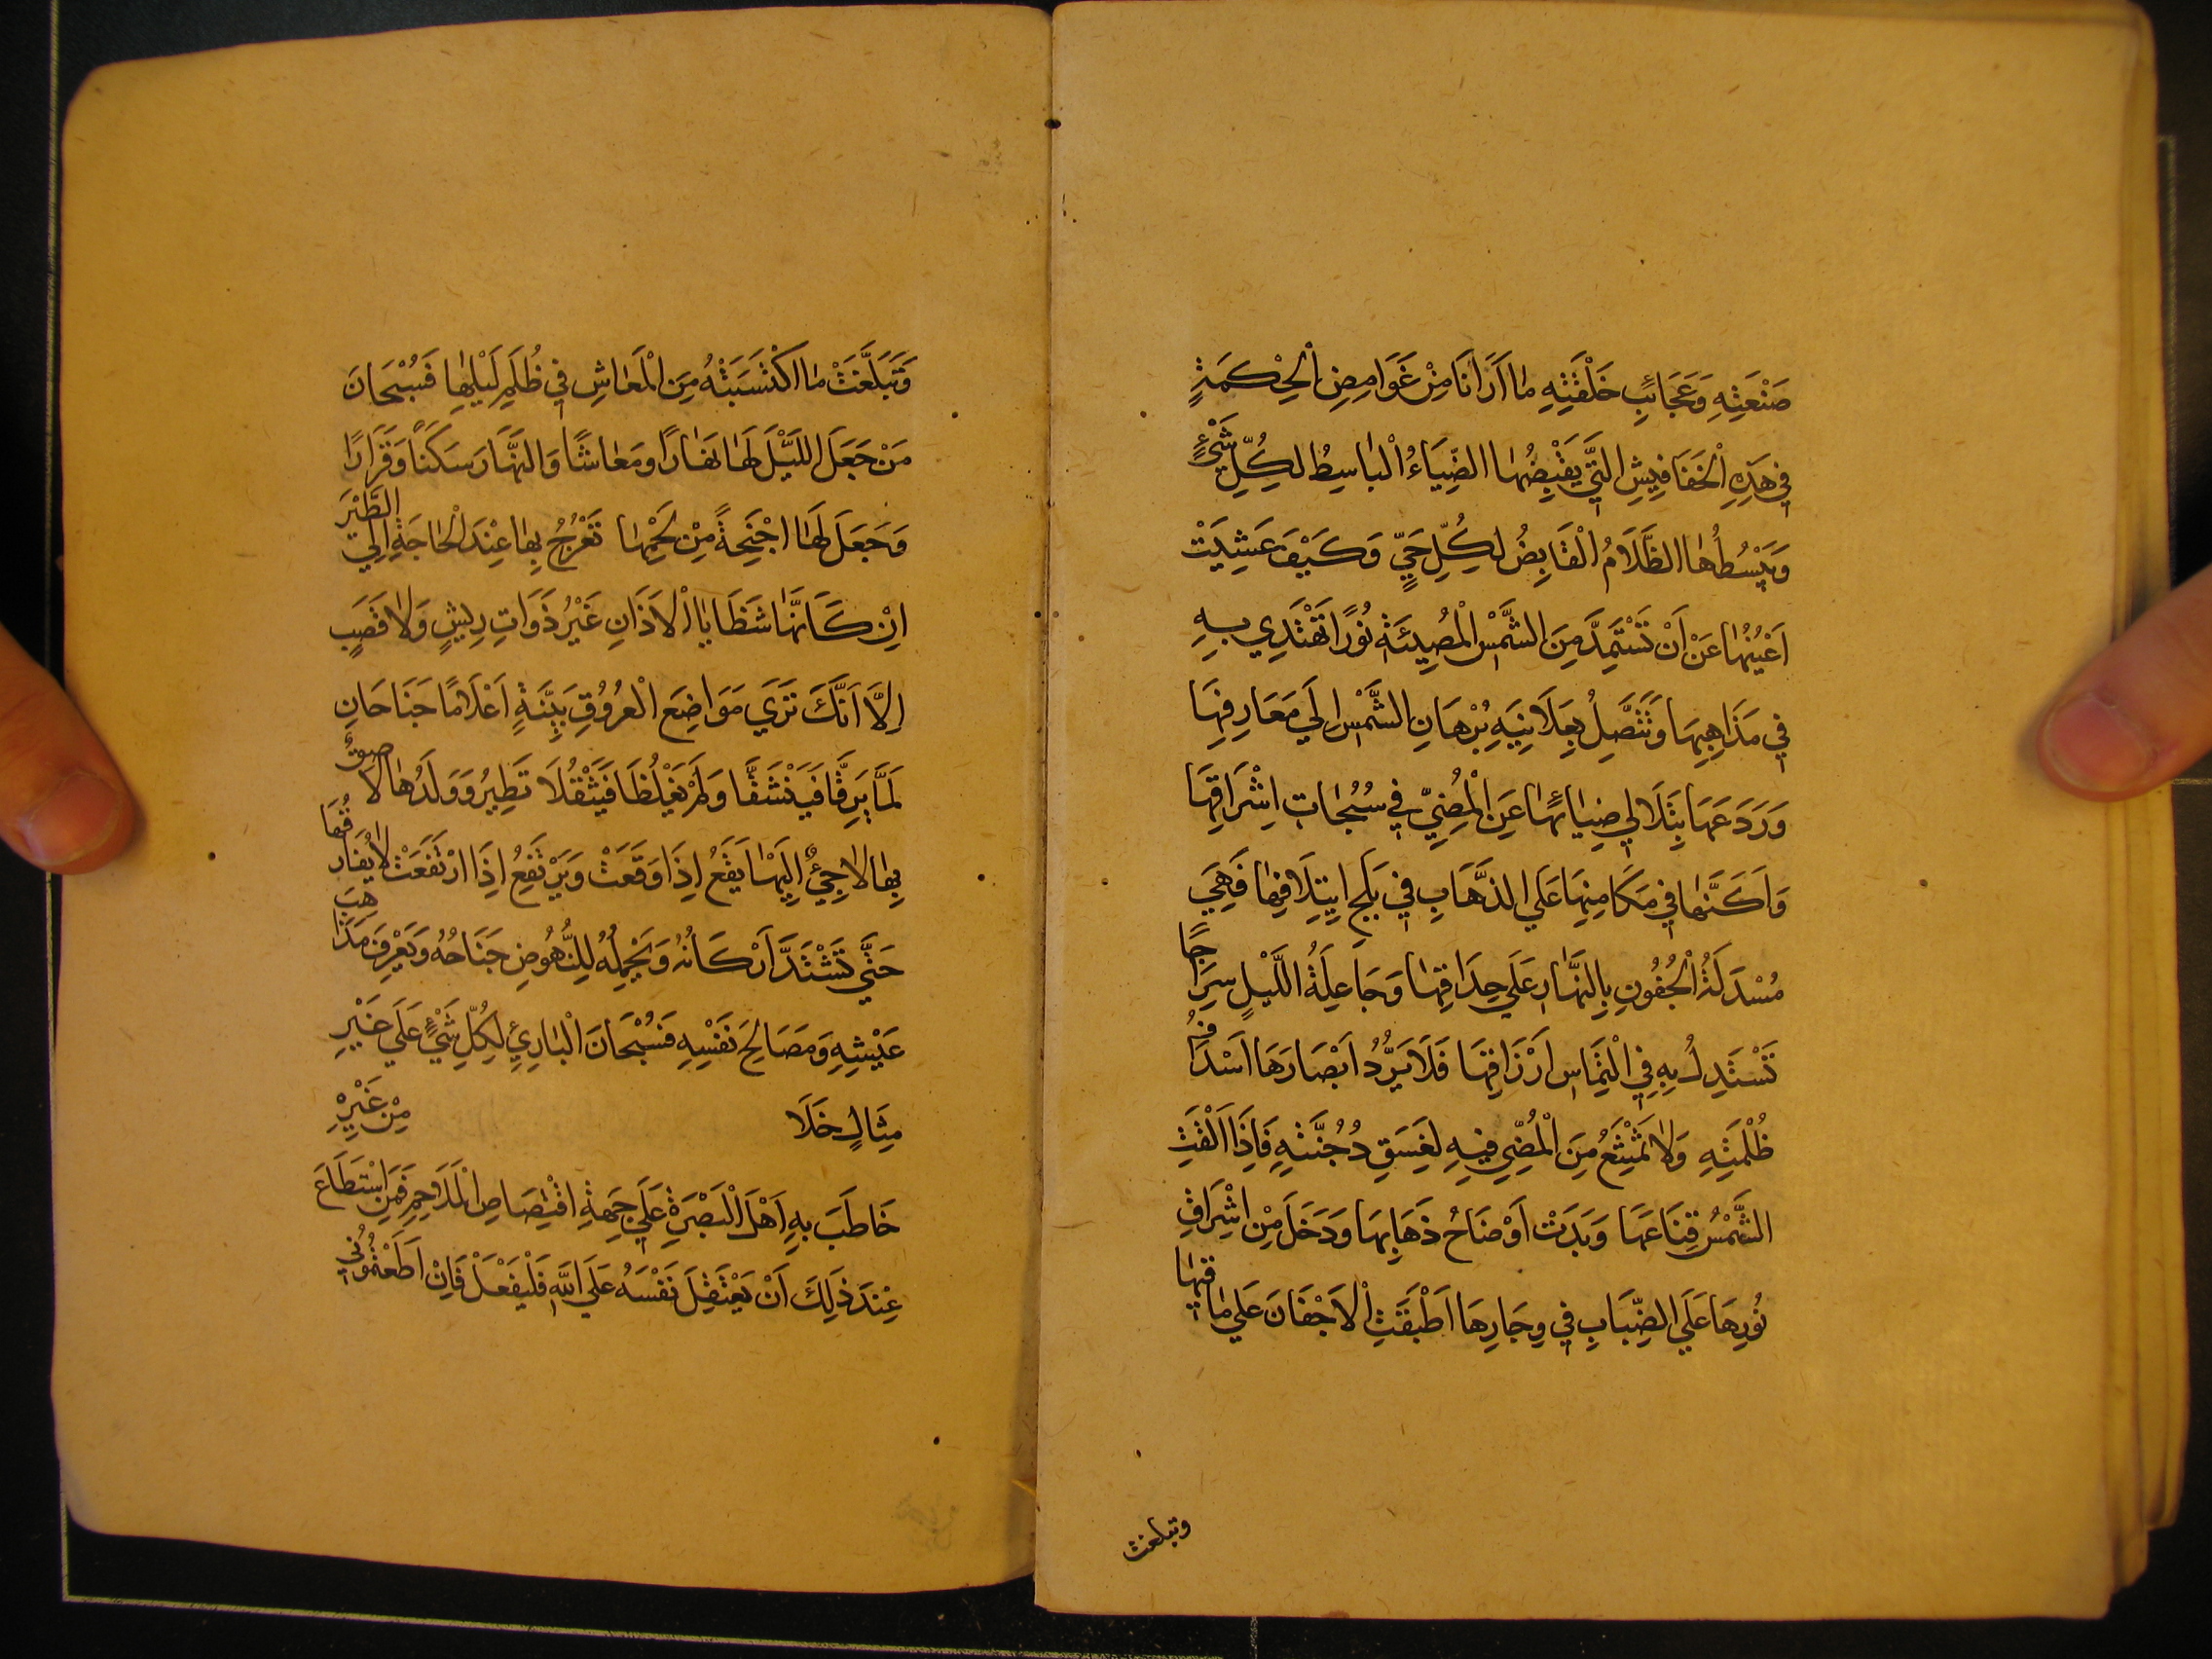 صَنْعَتِهِ وَعَجَائِبِ خَلْقَتِهِ مَا اَرَانَا مِنْ غَوَامِضِ الْحِكْمَةِ
فِي هَذِهِ الْخَفَافِيشِ الَّتِي يَقْبِضُهَا الضِّيَاءُ الْبَاسِطُ لِكُلِّ شَيْءٍ
وَيَبْسُطُهَا الظَّلَامُ الْقَابِضُ لِكُلِّ حَيٍّ وَكَيْفَ عَشِيَتْ
اَعْيُنُهَا عَنْ اَنْ تَسْتَمِدَّ مِنَ الشَّمْسِ الْمُضِيئَةِ نُورًا تَهْتَدِي بِهِ
فِي مَذَاهِبِهَا وَتَتَّصِلُ بِعَلَانِيَةِ بُرْهَانِ الشَّمْسِ اِلَي مَعَارِفِهَا
وَرَدَعَهَا بِتَلَالِي ضِيَائِهَا عَنِ الْمُضِيِّ فِي سُبُحَاتِ اِشْرَاقِهَا
وَاَكَنَّهَا فِي مَكَامِنِهَا عَلَي الذَّهَابِ فِي بَلَجِ ايتِلَافِهَا فَهِيَ
مُسْدَلَةُ الْجُفُونِ بِالنَّهَارِ عَلَي حِدَاقِهَا وَجَاعِلَةُ اللَّيْلِ سِرَاجًا
تَسْتَدِلُّ بِهِ فِي الْتِمَاسِ اَرْزَاقِهَا فَلَا يَرُدُّ اَبْصَارَهَا اَسْدَافُ
ظُلْمَتِهِ وَلَا تَمْتَنِعُ مِنَ الْمُضِيِّ فِيهِ لِغَسَقِ دُجُنَّتِهِ فَاِذَا اَلْقَتِ
الشَّمْسُ قِنَاعَهَا وَبَدَتْ اَوْضَاحُ ذَهَابِهَا وَدَخَلَ مِنْ اِشْرَاقِ
نُورِهَا عَلَي الضِّبَابِ فِي وِجَارِهَا اَطْبَقَتِ الْاَجْفَانَ عَلَي مَاقِيهَا
وتبلغت
وَتَبَلَّغَتْ مَا اكْتَسَبَتْهُ مِنَ الْمَعَاشِ فِي ظُلَمِ لَيْلِهَا فَسُبْحَانَ
مَنْ جَعَلَ اللَّيْلَ لَهَا نَهَارًا وَمَعَاشًا وَالنَّهَارَ سَكَنًا وَقَرَارًا
وَجَعَلَ لَهَا اَجْنِحَةً مِنْ لَحْمِهَا تَعْرُجُ بِهَا عِنْدَ الْحَاجَةِ اِلَي الطَّيَرَ
انِ كَاَنَّهَا شَظَايَا الْاَذَانِ غَيْرُ ذَوَاتِ رِيشٍ وَلَا قَصَبٍ
اِلَّا اَنَّكَ تَرَي مَوَاضِعَ الْعُرُوقِ بَيِّنَةٍ اَعْلَامًا جَنَاحَانِ
لَمَّا يَرِقَّا فَيَنْشَقَّا وَلَمْ يَغْلُظَا فَيَثْقُلَا تَطِيرُ وَوَلَدُهَا لَاصِقٌ
بِهَا لَاجِيٌ اِلَيْهَا يَقَعُ اِذَا وَقَعَتْ وَيَرْتَفِعُ اِذَا ارْتَفَعَتْ لَا يُفَارِقُهَا
حَتَّي تَشْتَدَّ اَرْكَانُهُ وَيَحْمِلَهُ لِلنُّهُوضِ جَنَاحُهُ وَيَعْرِفَ مَذَاهِبَ
عَيْشِهِ وَمَصَالِحَ نَفْسِهِ فَسُبْحَانَ الْبَارِئِ لِكُلِّ شَيْءٍ عَلَي غَيْرِ
مِثَالٍ خَلَا مِنْ غَيْرِهِ
خَاطَبَ بِهِ اَهْلَ الْبَصْرَةِ عَلَي جِهَةِ اقْتِصَاصِ الْمَلَاحِمِ فَمَنِ اسْتَطَاعَ
عِنْدَ ذَلِكَ اَنْ يَعْتَقِلَ نَفْسَهُ عَلَي اللَّهِ فَلْيَفْعَلْ فَاِنْ اَطَعْتُمُونِي